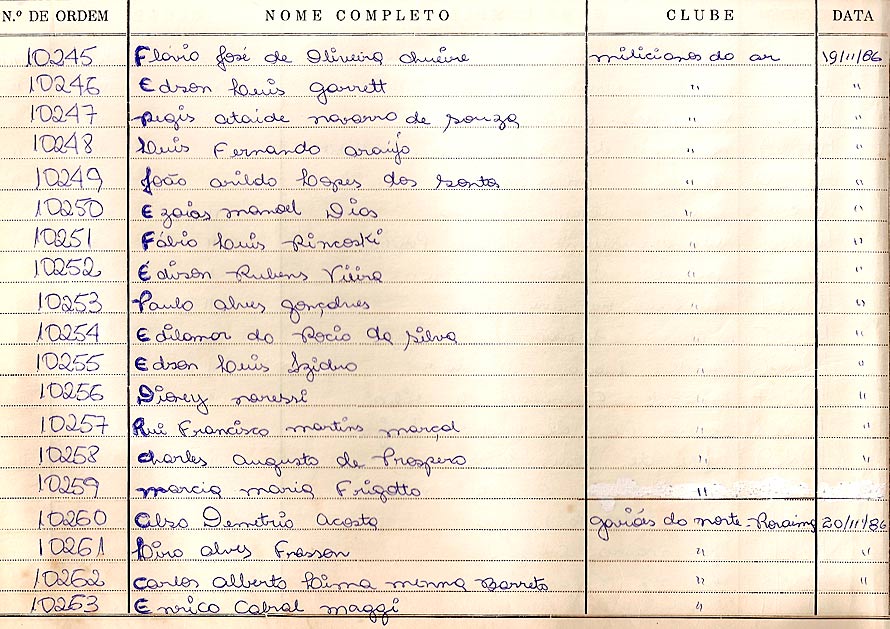 N.º DE ORDEM NOME COMPLETO CLUBE DATA
10245 Flávio José de Oliveira milicianos do ar 19/11/86
10246 Edson Luis Garrett " "
10247 Regis Ataide Navarro de Souza " "
10248 Luis Fernando Araújo " "
10249 João Arildo Lopes dos Santos " "
10250 Ezaias Manoel Dias " "
10251 Fábio Luis Rincoski " "
10252 Édison Rubens Vieira " "
10253 Paulo Alves Gonçalves " "
10254 Edilamar do Rocio da Silva " "
10255 Edson Luis Izidro " "
10256 Naressi " "
10257 Rui Francisco Martins Marçal " "
10258 Charles Augusto de Prospero " "
10259 Marcia Maria Frigotto "
10260 Celso Demetrio Acosta gaviões do norte-Roraima 20/11/86
10261 Alves Frasson " "
10262 Carlos Alberto Lima Menna Barreto " "
10263 Enrico Cabral Maggi "